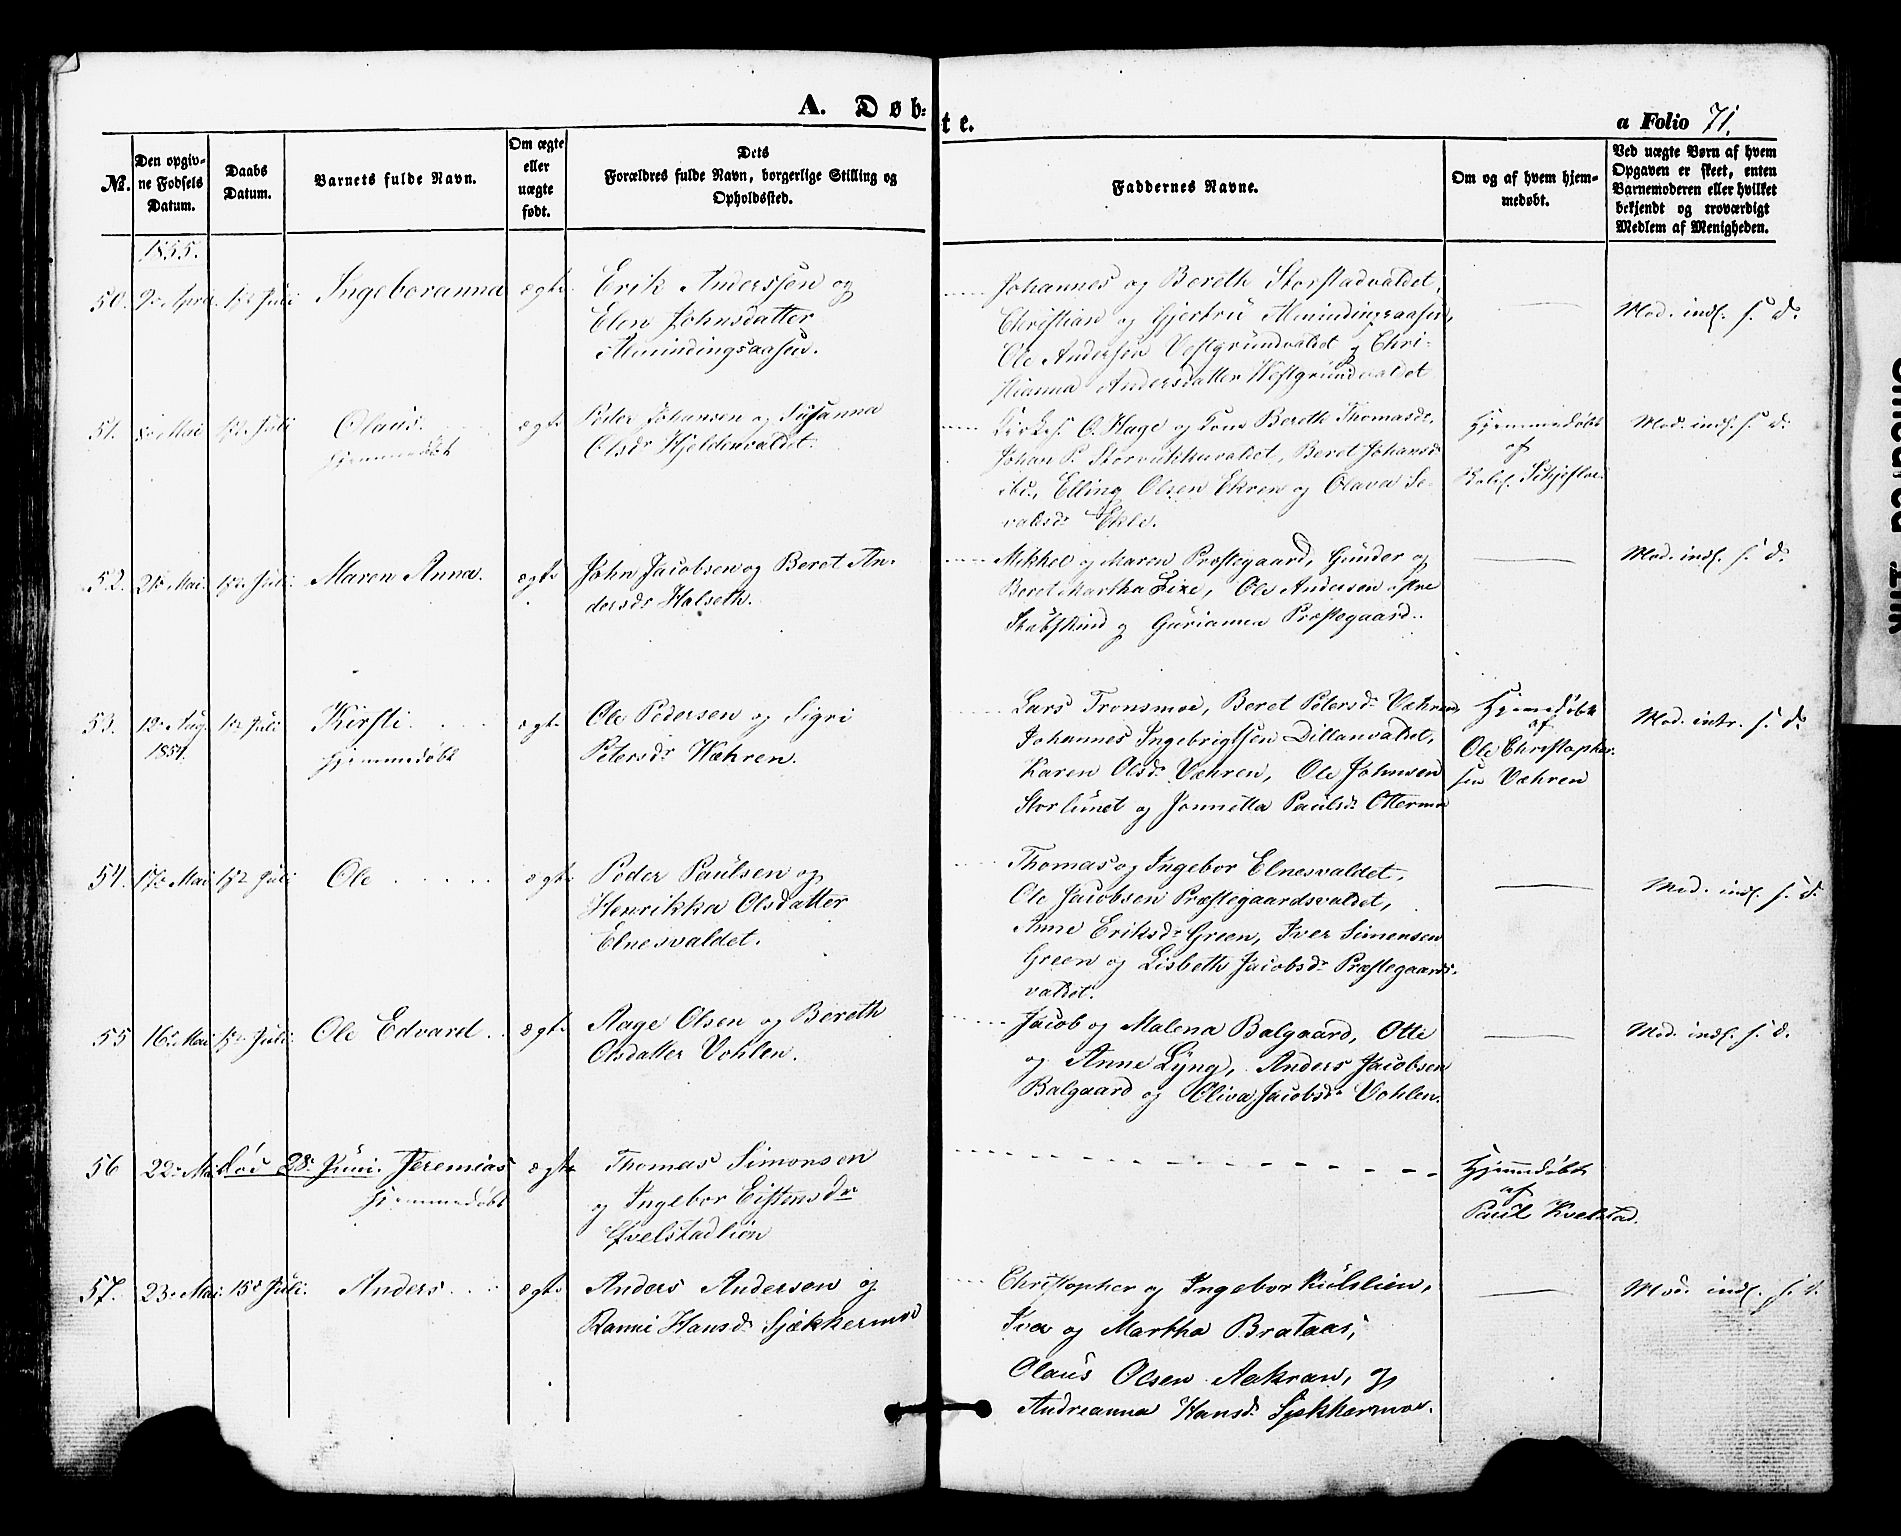 A. Døb-te.
a Folio 71.
№.
Den opgivne Fødsels Datum.
Daabs Datum.
Barnets fulde Navn.
Om ægte eller uægte født.
Dets Forældres fulde Navn, borgerlige Stilling og Opholdssted.
Faddernes Navne.
Om og af hvem hjemmedøbt.
Ved uægte Børn af hvem Opgaven er skeet, enten Barnemoderen eller hvilket bekjendt og troværdigt Medlem af Menigheden.
1855.
50. 9de April 1ste Juli Ingeboranna ægte
Erik Anderssen og
Elen Johnsdatter
Almindingsaasen.
Johannes og Bereth Storstadvaldet,
Christian og Gjertru Almindingsaasen,
Ole Andersen Vestgrundvaldet og Chri-
stianna Andersdatter Westgrundvaldet
Mod. indl. s. d.
51. Mai Juli Olaus ægte
Hjemmedøbt
Peder Johansen og Susanna
Olsdr Hjeldenvaldet.
Kirkes. O. Hage og Kone Bereth Thomasdr,
Johan P. Beret Johansd
ibd., Elling Olsen Ekren og Olava Se-
valdsdr Ekle.
Hjemmedøbt
af
Mod. indl. s. d.
52. Mai Juli Maren Anna. ægte
John Jacobsen og Beret An-
dersdr Halseth.
Mikkel og Maren Præstegaard, Gunder og
Beret Martha Ole Andersen
og Guriamea Præstegaard.
Mod. indl. s. d.
53. 12. Aug. Juli Kirsti ægte
1854.
Hjemmedøbt
Ole Pedersen og Sigri
Petersdr Wæhren.
Lars Tronsmoe, Beret Petersdr Væhren,
Johannes Ingebrigtsen Dillanvaldet,
Karen Olsdr Væhren, Ole Johnsen
Storlunet og Jonnetta Paulsdr Ottermo
Hjemmedøbt
af
Ole Christopher-
sen Væhren
Mod. intr. s. d.
54. 17de Mai Juli Ole ægte
Peder Paulsen og
Henrikka Olsdatter
Elnesvaldet.
Thomas og Ingebor Elnesvaldet,
Ole Jacobsen Præstegaardsvaldet,
Anne Eriksdr Green, Iver Simensen
Green og Lisbeth Jacobsdr Præstegaards-
valdet.
Mod. indl. s. d.
55 16de Mai Juli Ole Edvard ægte
Aage Olsen og Bereth
Olsdatter Vohlen.
Jacob og Malena Balgaard, Otte
og Anne Lyng, Anders Jacobsen
Balgaard og Oliva Jacobsdr Vohlen.
Mod. indl. s. d.
56 22de Mai død 28de Juni. Jeremias ægte
Hjemmedøbt
Thomas Simonsen
og Ingebor Eistensdr
Qvelstadlien
Hjemmedøbt
af
Paul Kvelstad.
57. 23de Mai 15de Juli. Anders ægte
Anders Andersen og
Hansdr Sjækkermoe
Christopher og Ingebor Kulslien,
Iver og Martha Brataas,
Olaus Olsen Aakran, og
Andreanna Hansdr Sjækkermoe.
Mod. indl. s. d.